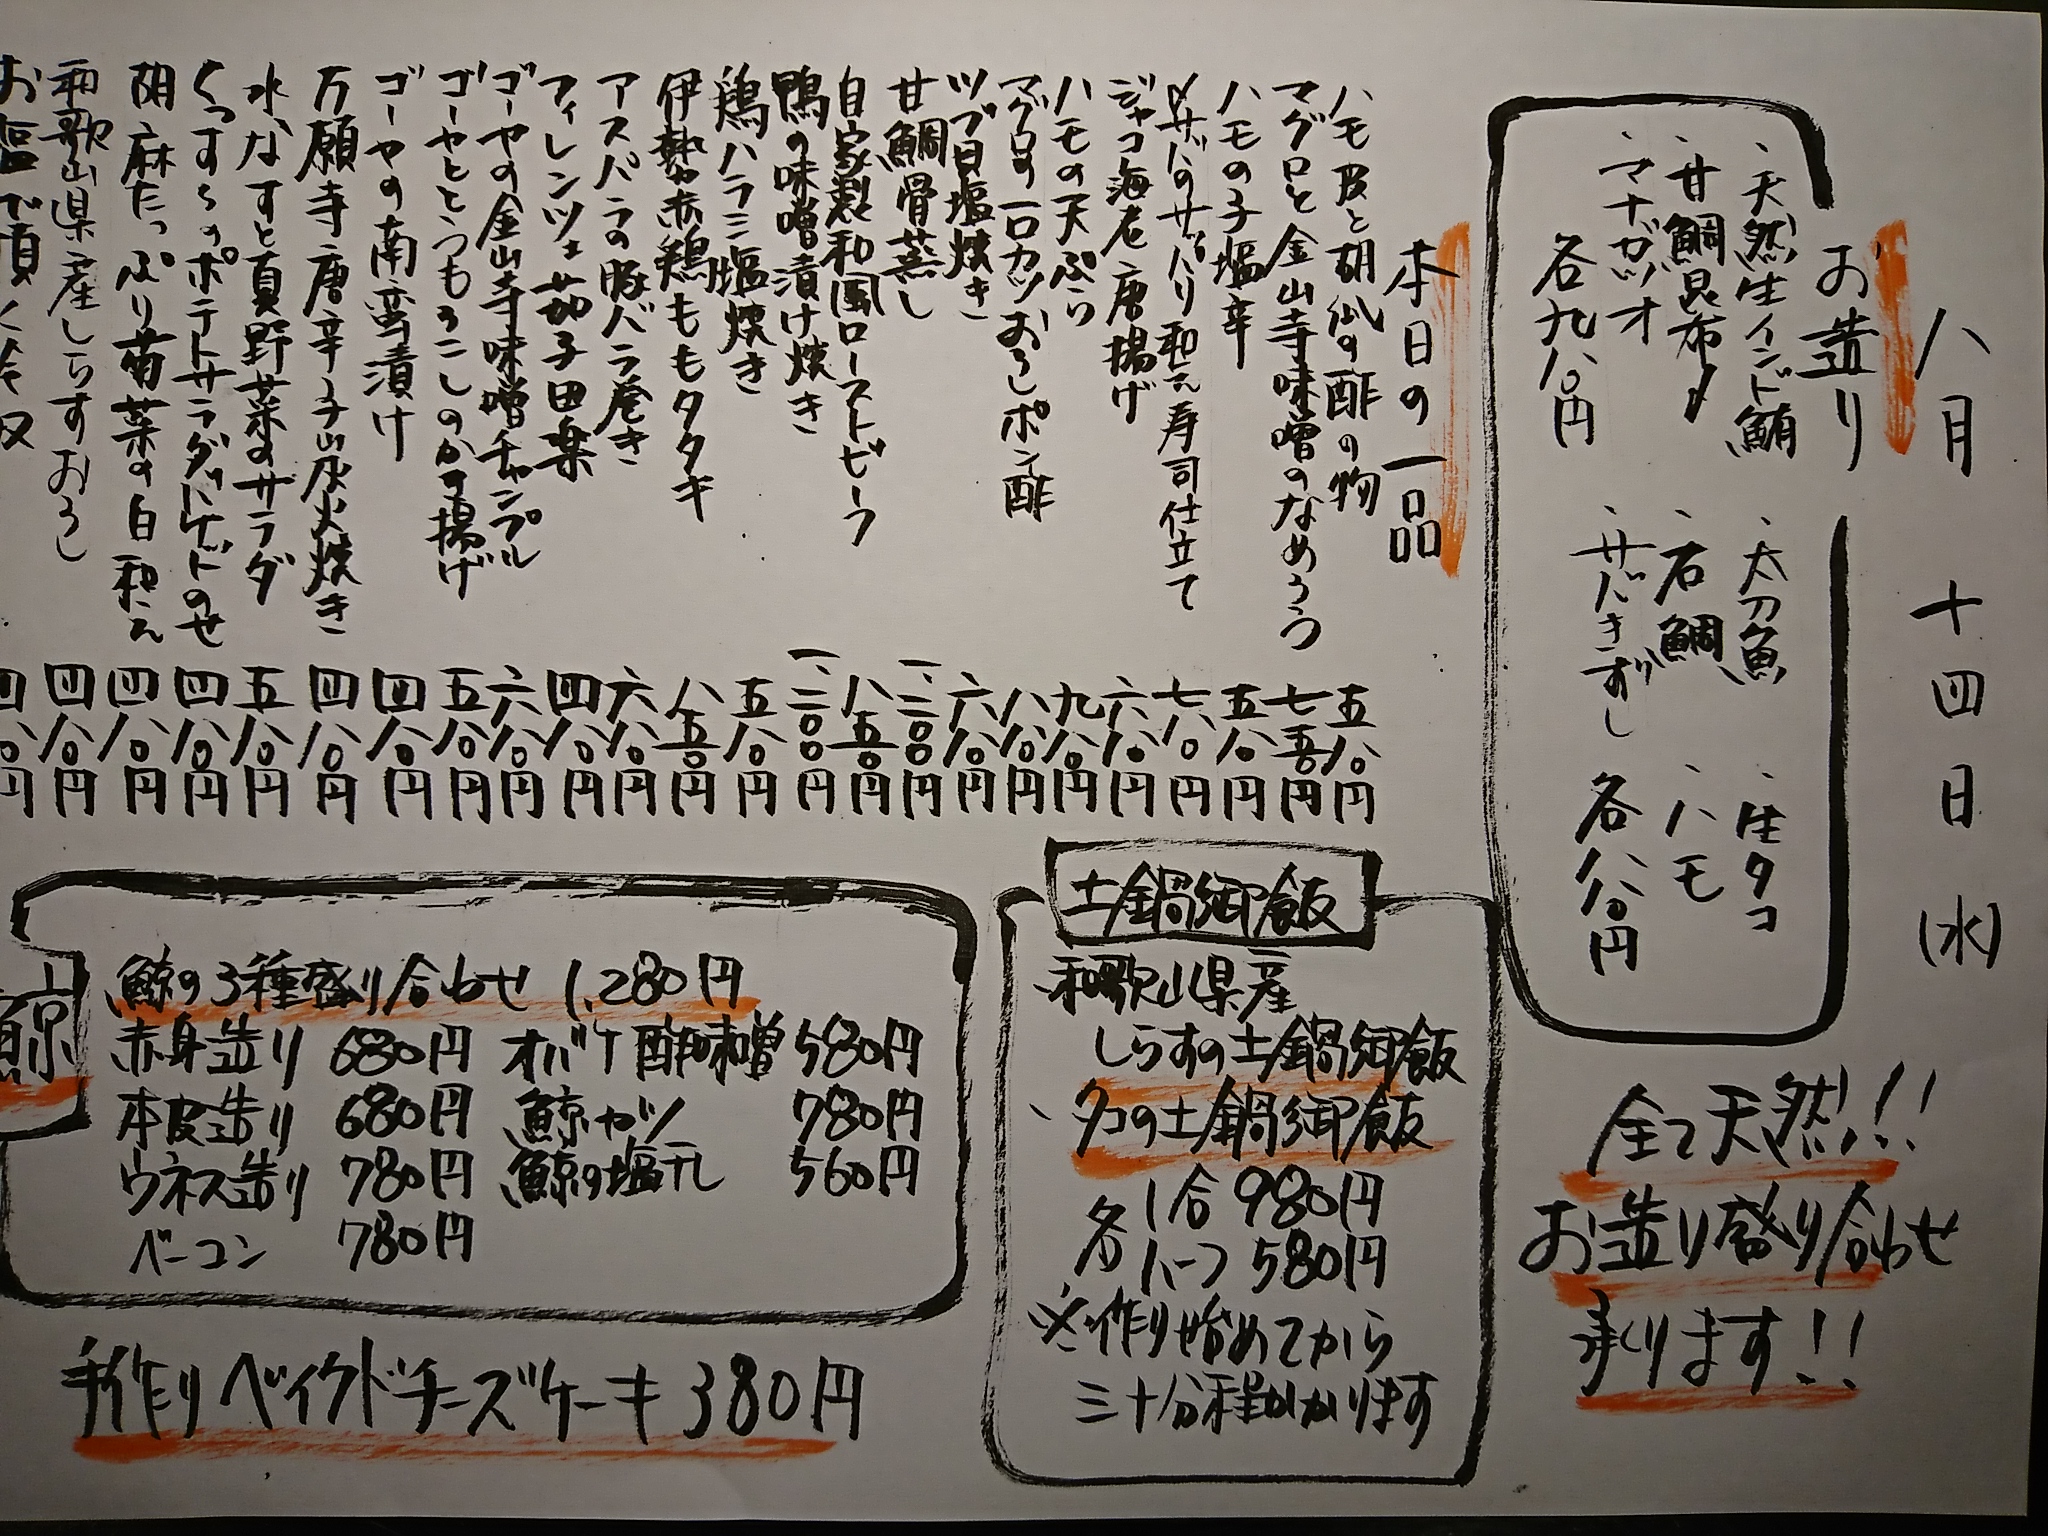 八月 十四日 (水)
お造り
、天然生インド鮪
、甘鯛昆布〆
、マナガツオ
各九八〇円
、太刀魚
、石鯛
、サバきずし
、生タコ
、ハモ
各八八〇円
全て天然!!
お造り盛り合わせ
承ります!!
本日の一品
ハモ皮と胡瓜の酢の物 五八〇円
マグロと金山寺味噌のなめろう 七五〇円
ハモの子塩辛 五八〇円
〆サバのサッパリ和え寿司仕立て 七八〇円
ジャコ海老唐揚げ 六八〇円
ハモの天ぷら 九八〇円
マグロの一口カツおろしポン酢 八八〇円
ツブ貝塩焼き 六八〇円
甘鯛骨蒸し 一、二〇〇円
自家製和風ローストビーフ 八五〇円
鴨の味噌漬け焼き 一、二〇〇円
鶏ハラミ塩焼き 五八〇円
伊勢赤鶏ももタタキ 八五〇円
アスパラの豚バラ巻き 六八〇円
フィレンツェ茄子田楽 四八〇円
ゴーヤの金山寺味噌チャンプル 六八〇円
ゴーヤととうもろこしのかき揚げ 五八〇円
ゴーヤの南蛮漬け 四八〇円
万願寺唐辛子炭火焼き 四八〇円
水なすと夏野菜のサラダ 五八〇円
くつすらのポテトサラダにゲドのせ 四八〇円
胡麻たっぷり菊菜の白和え 四八〇円
和歌山県産しらすおろし 四八〇円
土鍋御飯
和歌山県産
しらすの土鍋御飯
、タコの土鍋御飯
各 1合 980円
ハーフ 580円
※作り始めてから
三十分程かかります
鯨
鯨の3種盛り合わせ 1,280円
赤身造り 680円 オバケ酢味噌 580円
本皮造り 680円 鯨カツ 780円
ウネス造り 780円 鯨の塩干し 560円
ベーコン 780円
手作りベイクドチーズケーキ 380円